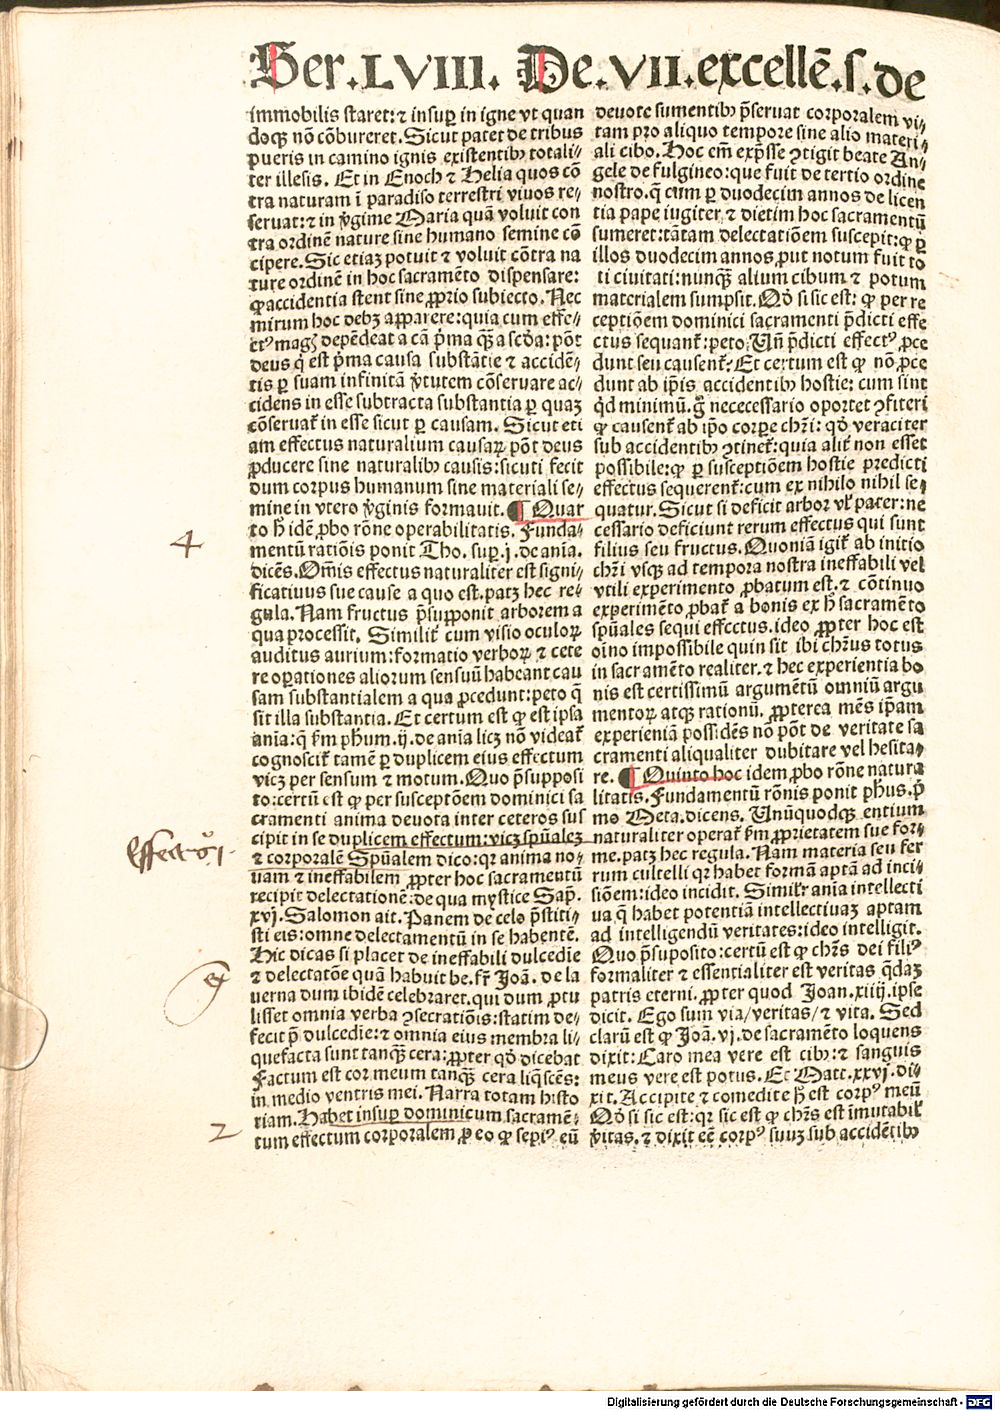 Ser.LVIII. De.VII.excellē.s.de
immobilis staret: ⁊ insuꝑ in igne vt quan
doqꝫ nō cōbureret. Sicut patet de tribus
pueris in camino ignis existentibꝰ totali⸗
ter illesis. Et in Enoch ⁊ Helia quos cō
tra naturam ī paradiso terrestri viuos re⸗
seruat: ⁊ in v̓gime Maria quā voluit con
tra ordinē nature sine humano semine cō
cipere. Sic etiaꝫ potuit ⁊ voluit cōtra na
ture ordinē in hoc sacramēto dispensare:
ꝙ accidentia stent sine ꝓprio subiecto. Nec
mirum hoc debꝫ apparere: quia cum effe⸗
ctꝰ magꝭ depēdeat a cā p̄ma qꝫ̄ a scd̓a: pōt
deus q̇ est p̄ma causa substātie ⁊ accidē⸗
tis ꝑ suam infinitā v̓tutem cōseruare ac⸗
cidens in esse subtracta substantia ꝑ quaꝫ
cōseruat̄ in esse sicut ꝑ causam. Sicut eti
am effectus naturalium causaꝝ pōt deus
ꝓducere sine naturalibꝰ causis: sicuti fecit
dum corpus humanum sine materiali se⸗
mine in vtero v̓ginis formauit. ¶ Quar
to h̓ idē ꝓbo rōne operabilitatis. Funda⸗
mentū ratiōis ponit Tho. suꝑ .ij. de anīa.
dicēs. Om̄is effectus naturaliter est signi⸗
ficatiuus sue cause a quo est. patꝫ hec re⸗
gula. Nam fructus p̄supponit arborem a
qua processit. Similit̄ cum visio oculoꝝ
auditus aurium: formatio verboꝝ ⁊ cete
re operationes aliorum sensuū habeant cau
sam substantialem a qua ꝓcedunt: peto q̄
sit illa substantia. Et certum est ꝙ est ipsa
anīa: q̄ ẜm pħum .ij. de anīa licꝫ nō videat̄
cognoscit̄ tamē ꝑ duplicem eius effectum
vicꝫ per sensum ⁊ motum. Quo p̄supposi
to: certū est ꝙ per susceptōem dominici sa
cramenti anima deuota inter ceteros sus
cipit in se duplicem effectum: vicꝫ spūaleꝫ
⁊ corporalē Spūalem dico: qꝛ anima no⸗
uam ⁊ ineffabilem ꝓpter hoc sacramentū
recipit delectationē: de qua mystice Sap.
xvj. Salomon ait. Panem de celo p̄stiti⸗
sti eis: omne delectamentū in se habentē.
Hic dicas si placet de ineffabili dulcedie
⁊ delectatōe quā habuit be. fr̄ Joā. de la
uerna dum ibidē celebraret. qui dum ꝓtu
lisset omnia verba ꝯsecratiōis: statim de⸗
fecit p̄ dulcedie: ⁊ omnia eius membra li⸗
quefacta sunt tanqꝫ̄ cera: ꝓpter qd̓ dicebat
Factum est cor meum tanqꝫ̄ cera liq̄scēs:
in medio ventris mei. Narra totam histo
riam. Habet insuꝑ dominicum sacramē⸗
tum effectum corporalem, ꝓ eo ꝙ sepiꝰ eū
deuote sumentibꝰ p̄seruat corporalem vi⸗
tam pro aliquo tempore sine alio materi⸗
ali cibo. Hoc em̄ exp̄sse ꝯtigit beate An⸗
gele de fulgineo: que fuit de tertio ordine
nostro. q̄ cum ꝑ duodecim annos de licen
tia pape iugiter ⁊ dietim hoc sacramentū
sumeret: tātam delectatiōem suscepit: ꝙ ꝑ
illos duodecim annos, put notum fuit to
ti ciuitati: nunqꝫ̄ alium cibum ⁊ potum
materialem sumpsit. Qd̓ si sic est: ꝙ per re
ceptiōem dominici sacramenti p̄dicti effe
ctus sequant̄: peto. Vn̄ p̄dicti effectꝰ ꝓce
dunt seu causent̄? Et certum est ꝙ nō ꝓce
dunt ab ip̄is accidentibꝰ hostie: cum sint
qd̓ minimū. g̊ nececessario oportet ꝯfiteri
ꝙ causent̄ ab ip̄o corpe chr̄i: qd̓ veraciter
sub accidentibꝰ ꝯtinet̄: quia alit̄ non esset
possibile: ꝙ ꝑ susceptiōem hostie predicti
effectus sequerent̄: cum ex nihilo nihil se⸗
quatur. Sicut si deficit arbor vl̓ pater: ne
cessario deficiunt rerum effectus qui sunt
filius seu fructus. Quoniā igit̄ ab initio
chr̄i vsqꝫ ad tempora nostra ineffabili vel
vtili experimento ꝓbatum est. ⁊ cōtinuo
experimēto ꝓbat̄ a bonis ex h̓ sacramēto
spūales sequi effectus. ideo ꝓpter hoc est
oīno impossibile quin sit ibi chr̄us totus
in sacramēto realiter. ⁊ hec experientia bo
nis est certissimū argumētū omniū argu
mentoꝝ atqꝫ rationū. ꝓpterea mēs ip̄am
experieniā possidēs nō pōt de veritate sa
cramenti aliqualiter dubitare vel hesita⸗
re. ¶ Quinto hoc idem ꝓbo rōne natura
litatis. Fundamentū rōnis ponit pħus. p̄
mo Meta. dicens. Unūquodqꝫ entium
naturaliter operat̄ ẜm ꝓprietatem sue for⸗
me. patꝫ hec regula. Nam materia seu fer
rum cultelli qꝛ habet formā aptā ad inci⸗
siōem: ideo incidit. Similr̄ anīa intellecti
ua q̄ habet potentiā intellectiuaꝫ aptam
ad intelligendū veritates: ideo intelligit.
Quo p̄suposito: certū est ꝙ chr̄s dei filiꝰ
formaliter ⁊ essentialiter est veritas q̄daꝫ
patris eterni. ꝓpter quod Joan. xiiij. ipse
dicit. Ego sum via/ veritas/ ⁊ vita. Sed
clarū est ꝙ Joā. vj. de sacramēto loquens
dixit: Caro mea vere est cibꝰ: ⁊ sanguis
meus vere est potus. Et Matt. xxvj. di⸗
xit. Accipite ⁊ comedite h̓ est corpꝰ meū
Qd̓ si sic est: qꝛ sic est ꝙ chr̄s est īmutabil̓
v̓itas. ⁊ dixit eē corpꝰ suuꝫ sub accidētibꝰ
4
2
Digitalisierung gefördert durch die Deutsche Forschungsgemeinschaft - DFG